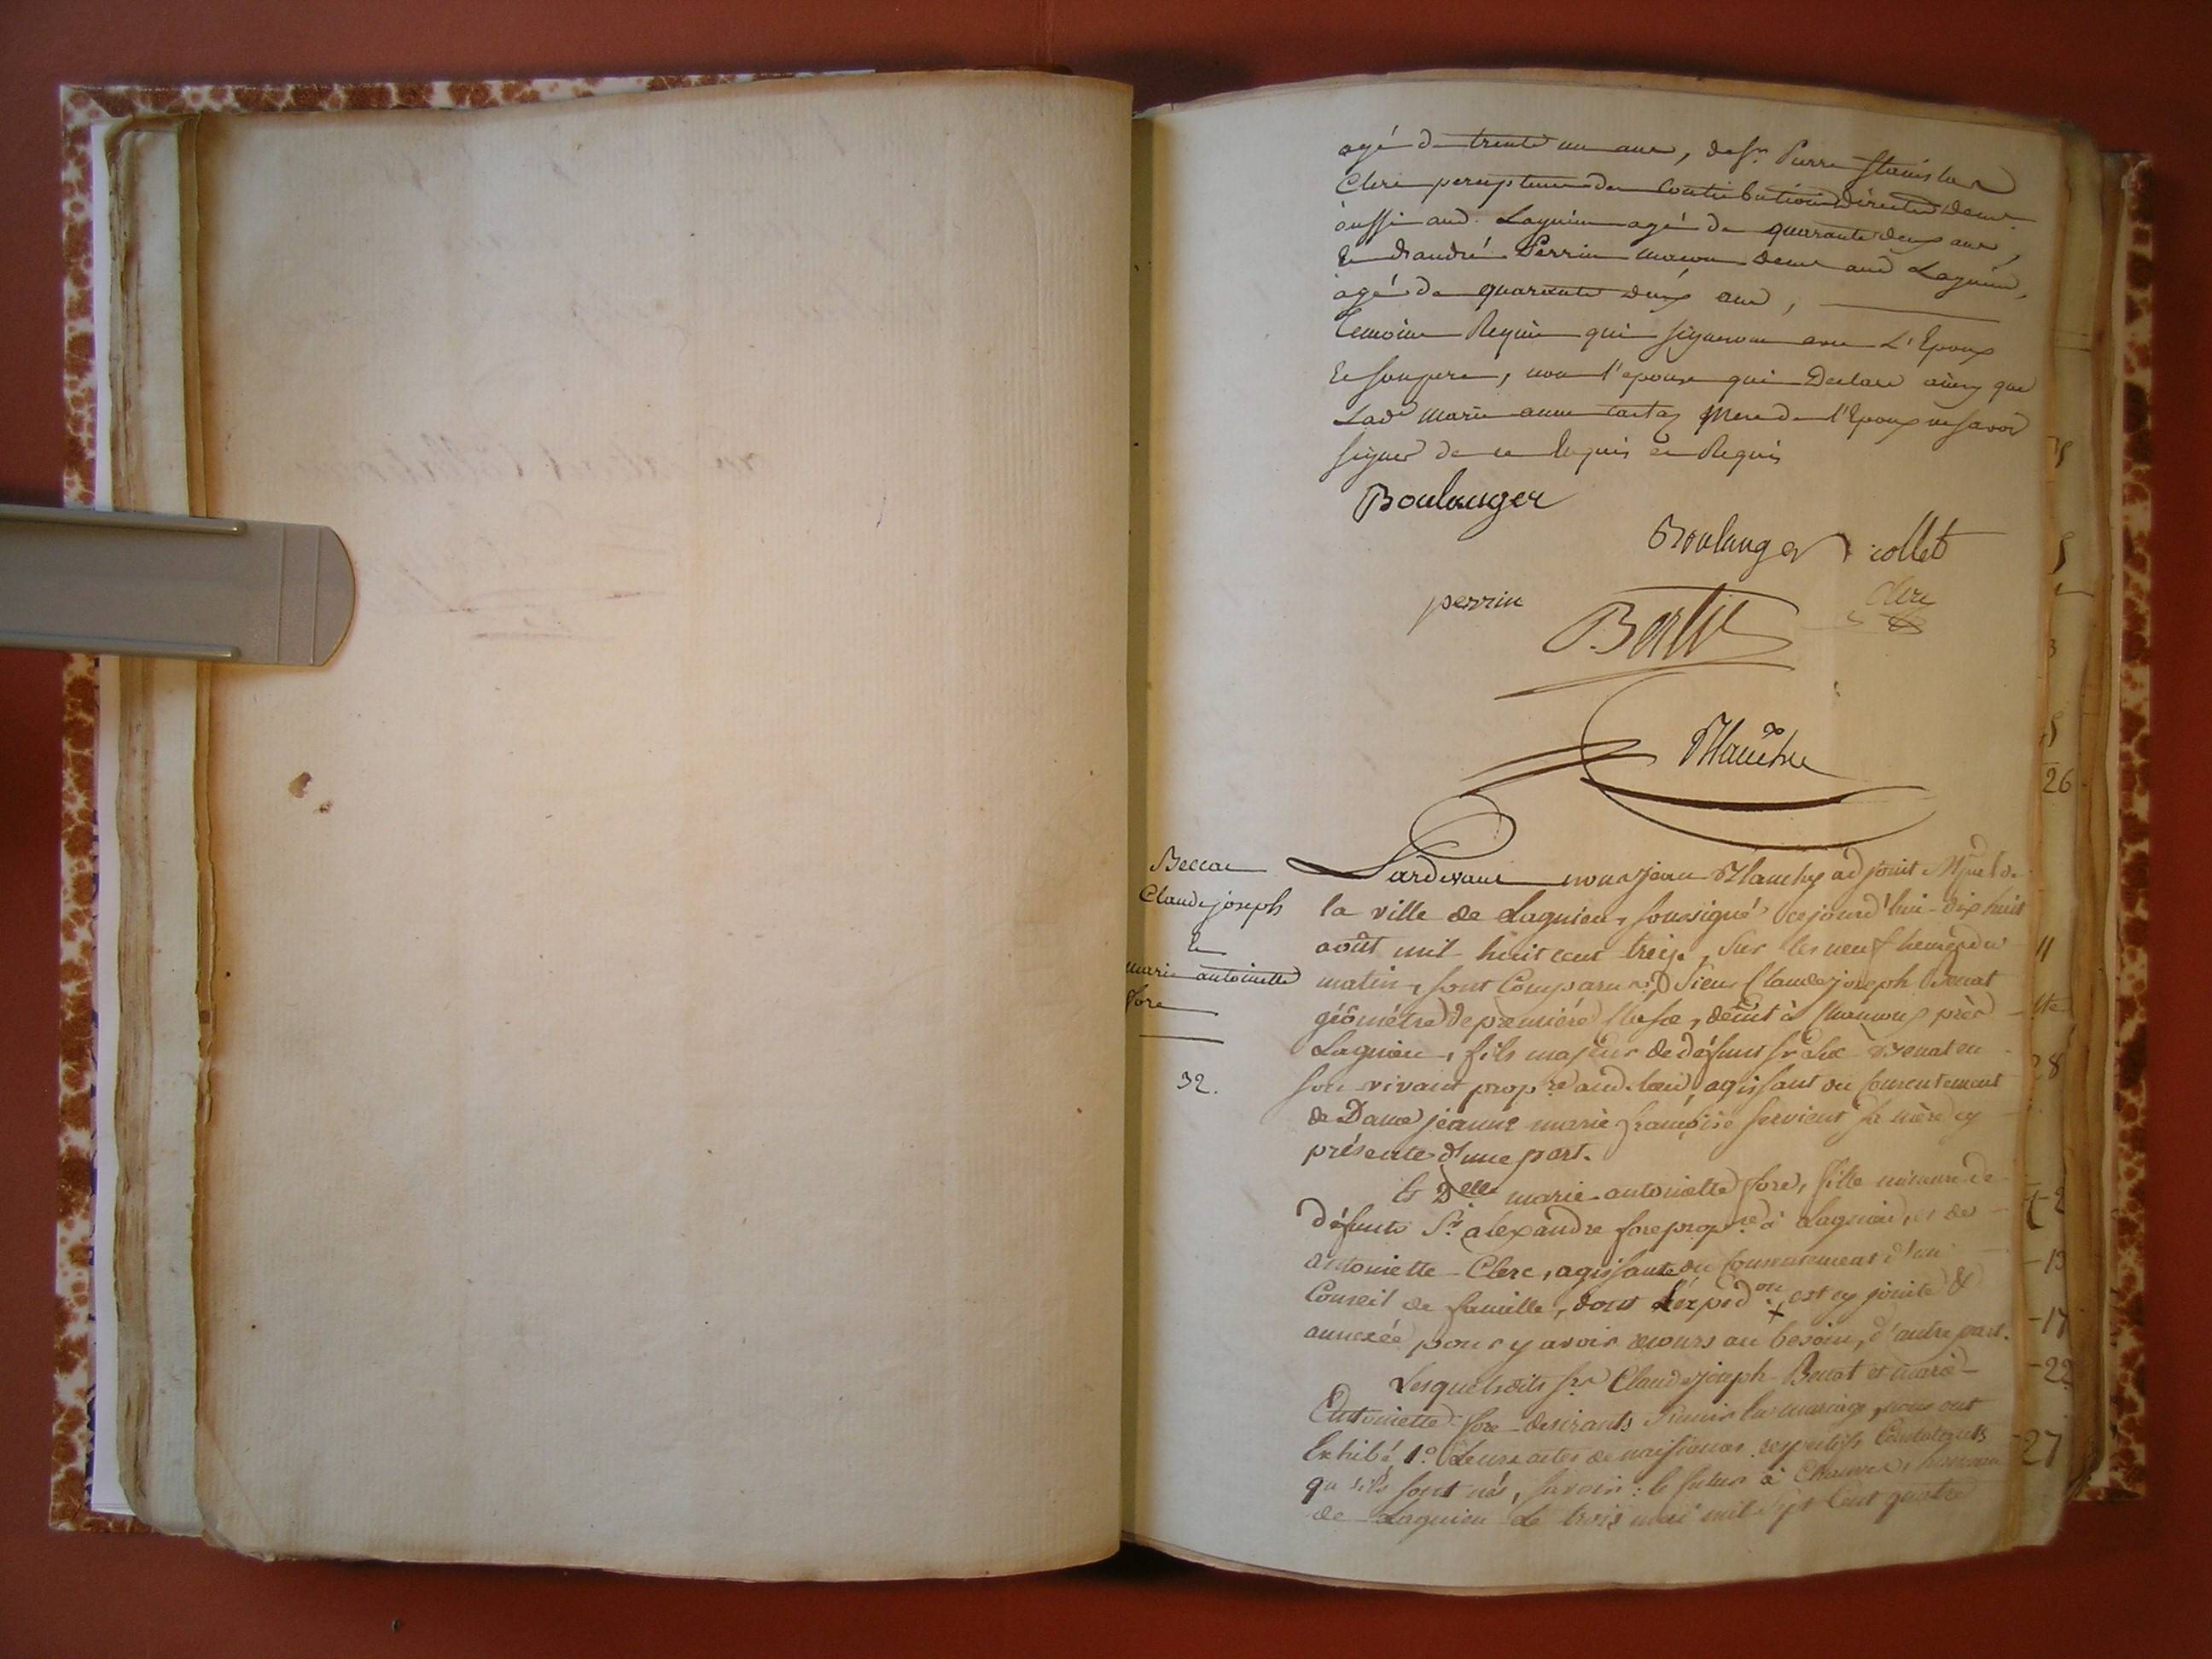 agé de trente un ans, de sr. Pierre Stanislas
Clerc percepteur des Contributions directes demt
aussi aud. Lagnieu agé de quarante deux ans,
Et d'andré Perrin macon demt aud Lagnieu,
agé de quarante deux ans,
Temoins Requis qui signeront avec L'Epoux
Et son pere, non l'epouse qui Declare ainsy que
Lade marie anne Mere de l'Epoux ne savoir
signer de ce Enquis et Requis
Boulanger
Boulanger collet
perrin
clerc
Blanchy
Claude joseph
Et
marie antoinette
fore
32.
Pardevant nous jean Blanchy adjoint
la ville de Lagnieu, soussigné cejourd'hui dix huit
août mil huit cent treize, sur les neuf heures du
matin, sont Comparus, Sieur Claude joseph
géomètre de première classe, demt à près
Lagnieu, fils majeur de défunt sr
son vivant propre aud. lieu, agissant du consentement
de Dame jeanne marie françoise servient sa mère cy
présente d'une part.
Et Delle marie antoinette fore, fille mineure de
défunts Sr. alexandre fore propre. à Lagnieu, et de
antoinette Clerc, agissante du consentement d'un
Conseil de famille, dont L'expedon. est cy jointe &
annexée pour y avoir recours au besoin, d'autre part.
Lesquels dits srs Claude joseph et marie
Antoinette fore desirants s'unir en mariage, nous ont
Exhibé, 1.º Leurs actes de naissances respectifs Constatants
qu'ils sont nés, savoir : le futur à hameau
de Lagnieu Le trois mai mil sept Cent quatre
26
11
28
-13
-17
-22
-27